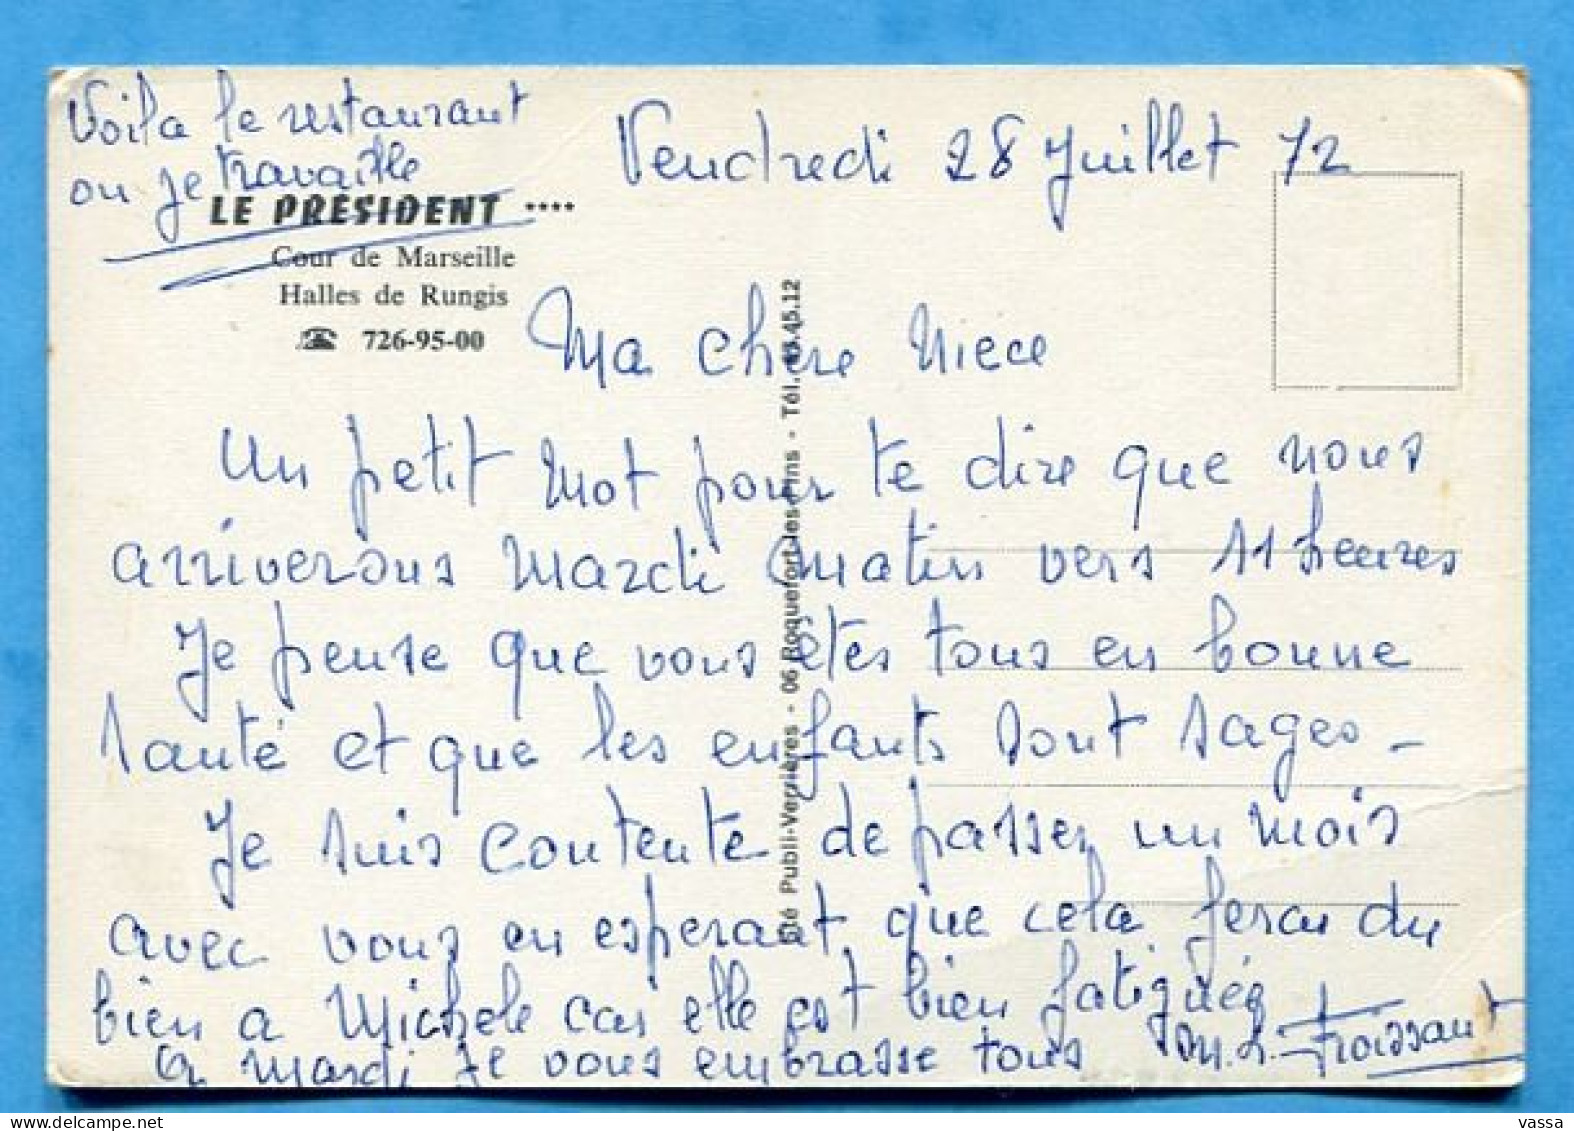 Voila le restaurant
ou je travaille
Vendredi 28 Juillet 72
LE PRÉSIDENT ****
Cour de Marseille
Halles de Rungis
☎ 726-95-00
Ma chere Niece
Un petit mot pour te dire que nous
arriverons Mardi matin vers 11 heures
Je pense que vous etes tous en bonne
santé et que les enfants sont sages -
Je suis contente de passer un mois
avec vous en esperant que cela fera du
bien a Michele car elle est bien fatiguée
a mardi je vous embrasse tous M.L. Froissant
Sté Publi-Verrières - 06 Roquefort-les-Pins - Tél. 45.12
vassa